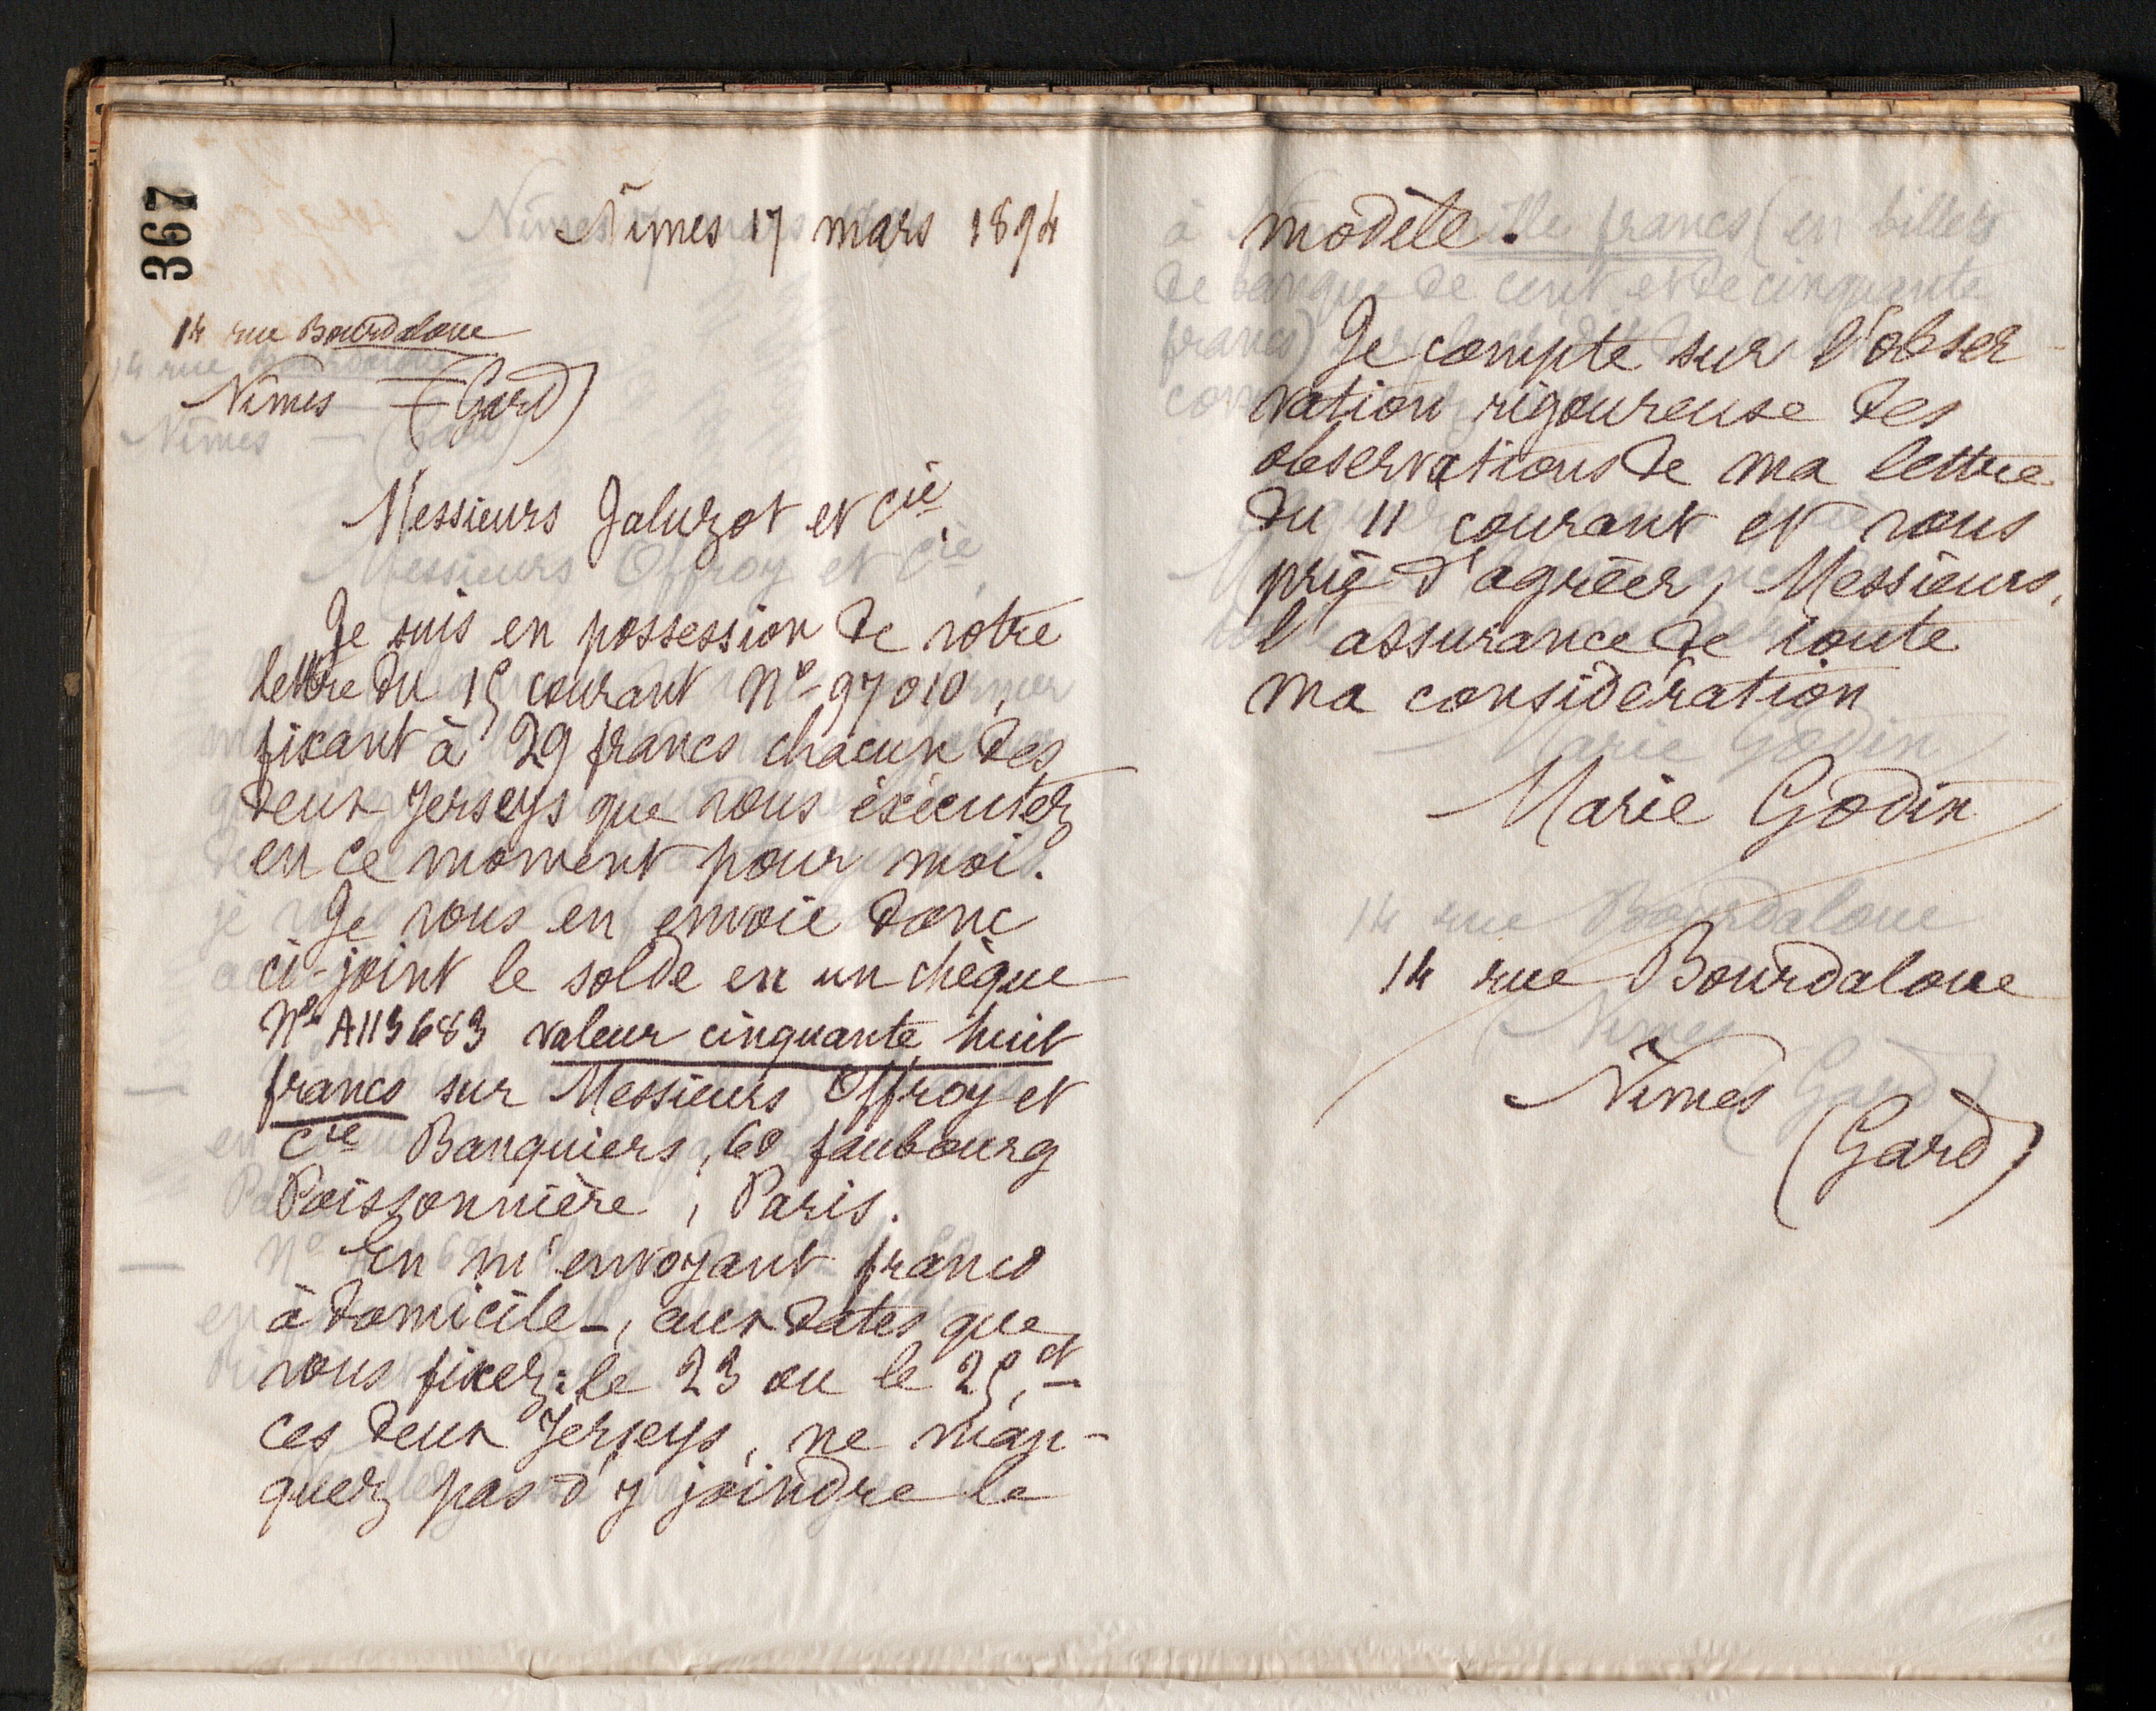 367
Nîmes 17 mars 1894
14 rue Bourdaloue
Nîmes — (Gard)
Messieurs Jaluzot et Cie,
Je suis en possession de votre
lettre du 15 courant No 97010,
fixant à 29 francs chacun des
deux Jerseys que vous exécutez
en ce moment pour moi.
Je vous en envoie donc
ci-joint le solde en un chèque
No A113683 valeur cinquante huit
francs sur Messieurs Offroy et
Cie Banquiers, 60 faubourg
Poissonnière, Paris.
En m'envoyant franco
à domicile, aux dates que
vous fixez: le 23 ou le 25 ct,
ces deux Jerseys, ne man-
quez pas d'y joindre le
modèle.
Je compte sur l'obser-
vation rigoureuse des
observations de ma lettre
du 11 courant et vous
prie d'agréer, Messieurs,
l'assurance de toute
ma considération
Marie Godin
14 rue Bourdaloue
Nîmes
(Gard)